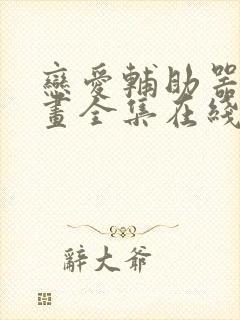 戀愛輔助器
畫全集在綫
辭大爺